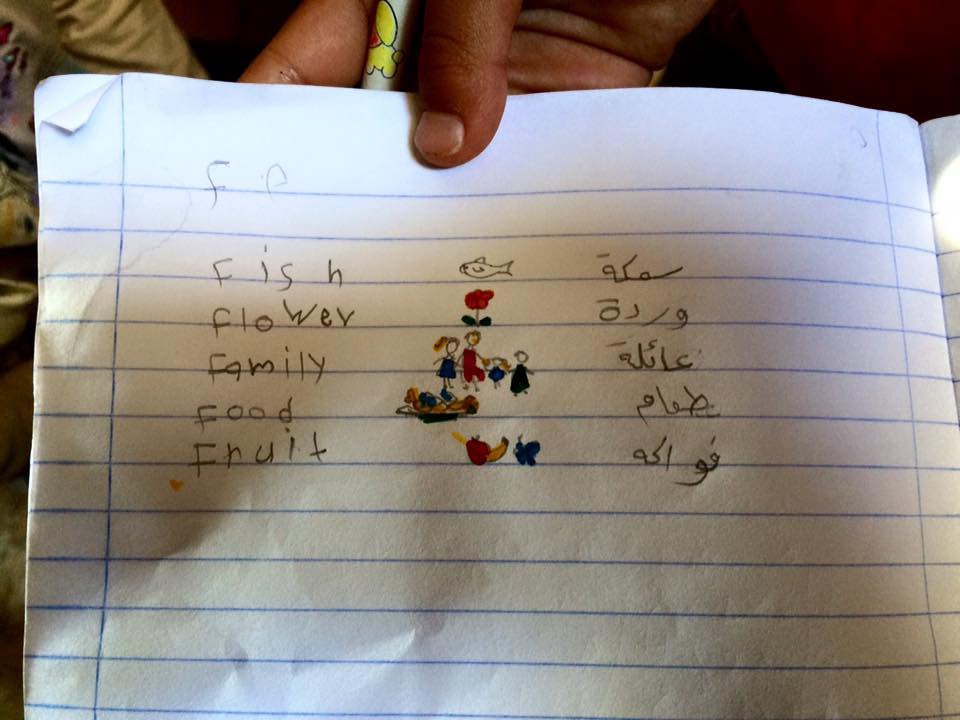 F
Fish سمكة
Flower وردة
Family عائلة
Food طعام
Fruit فواكه